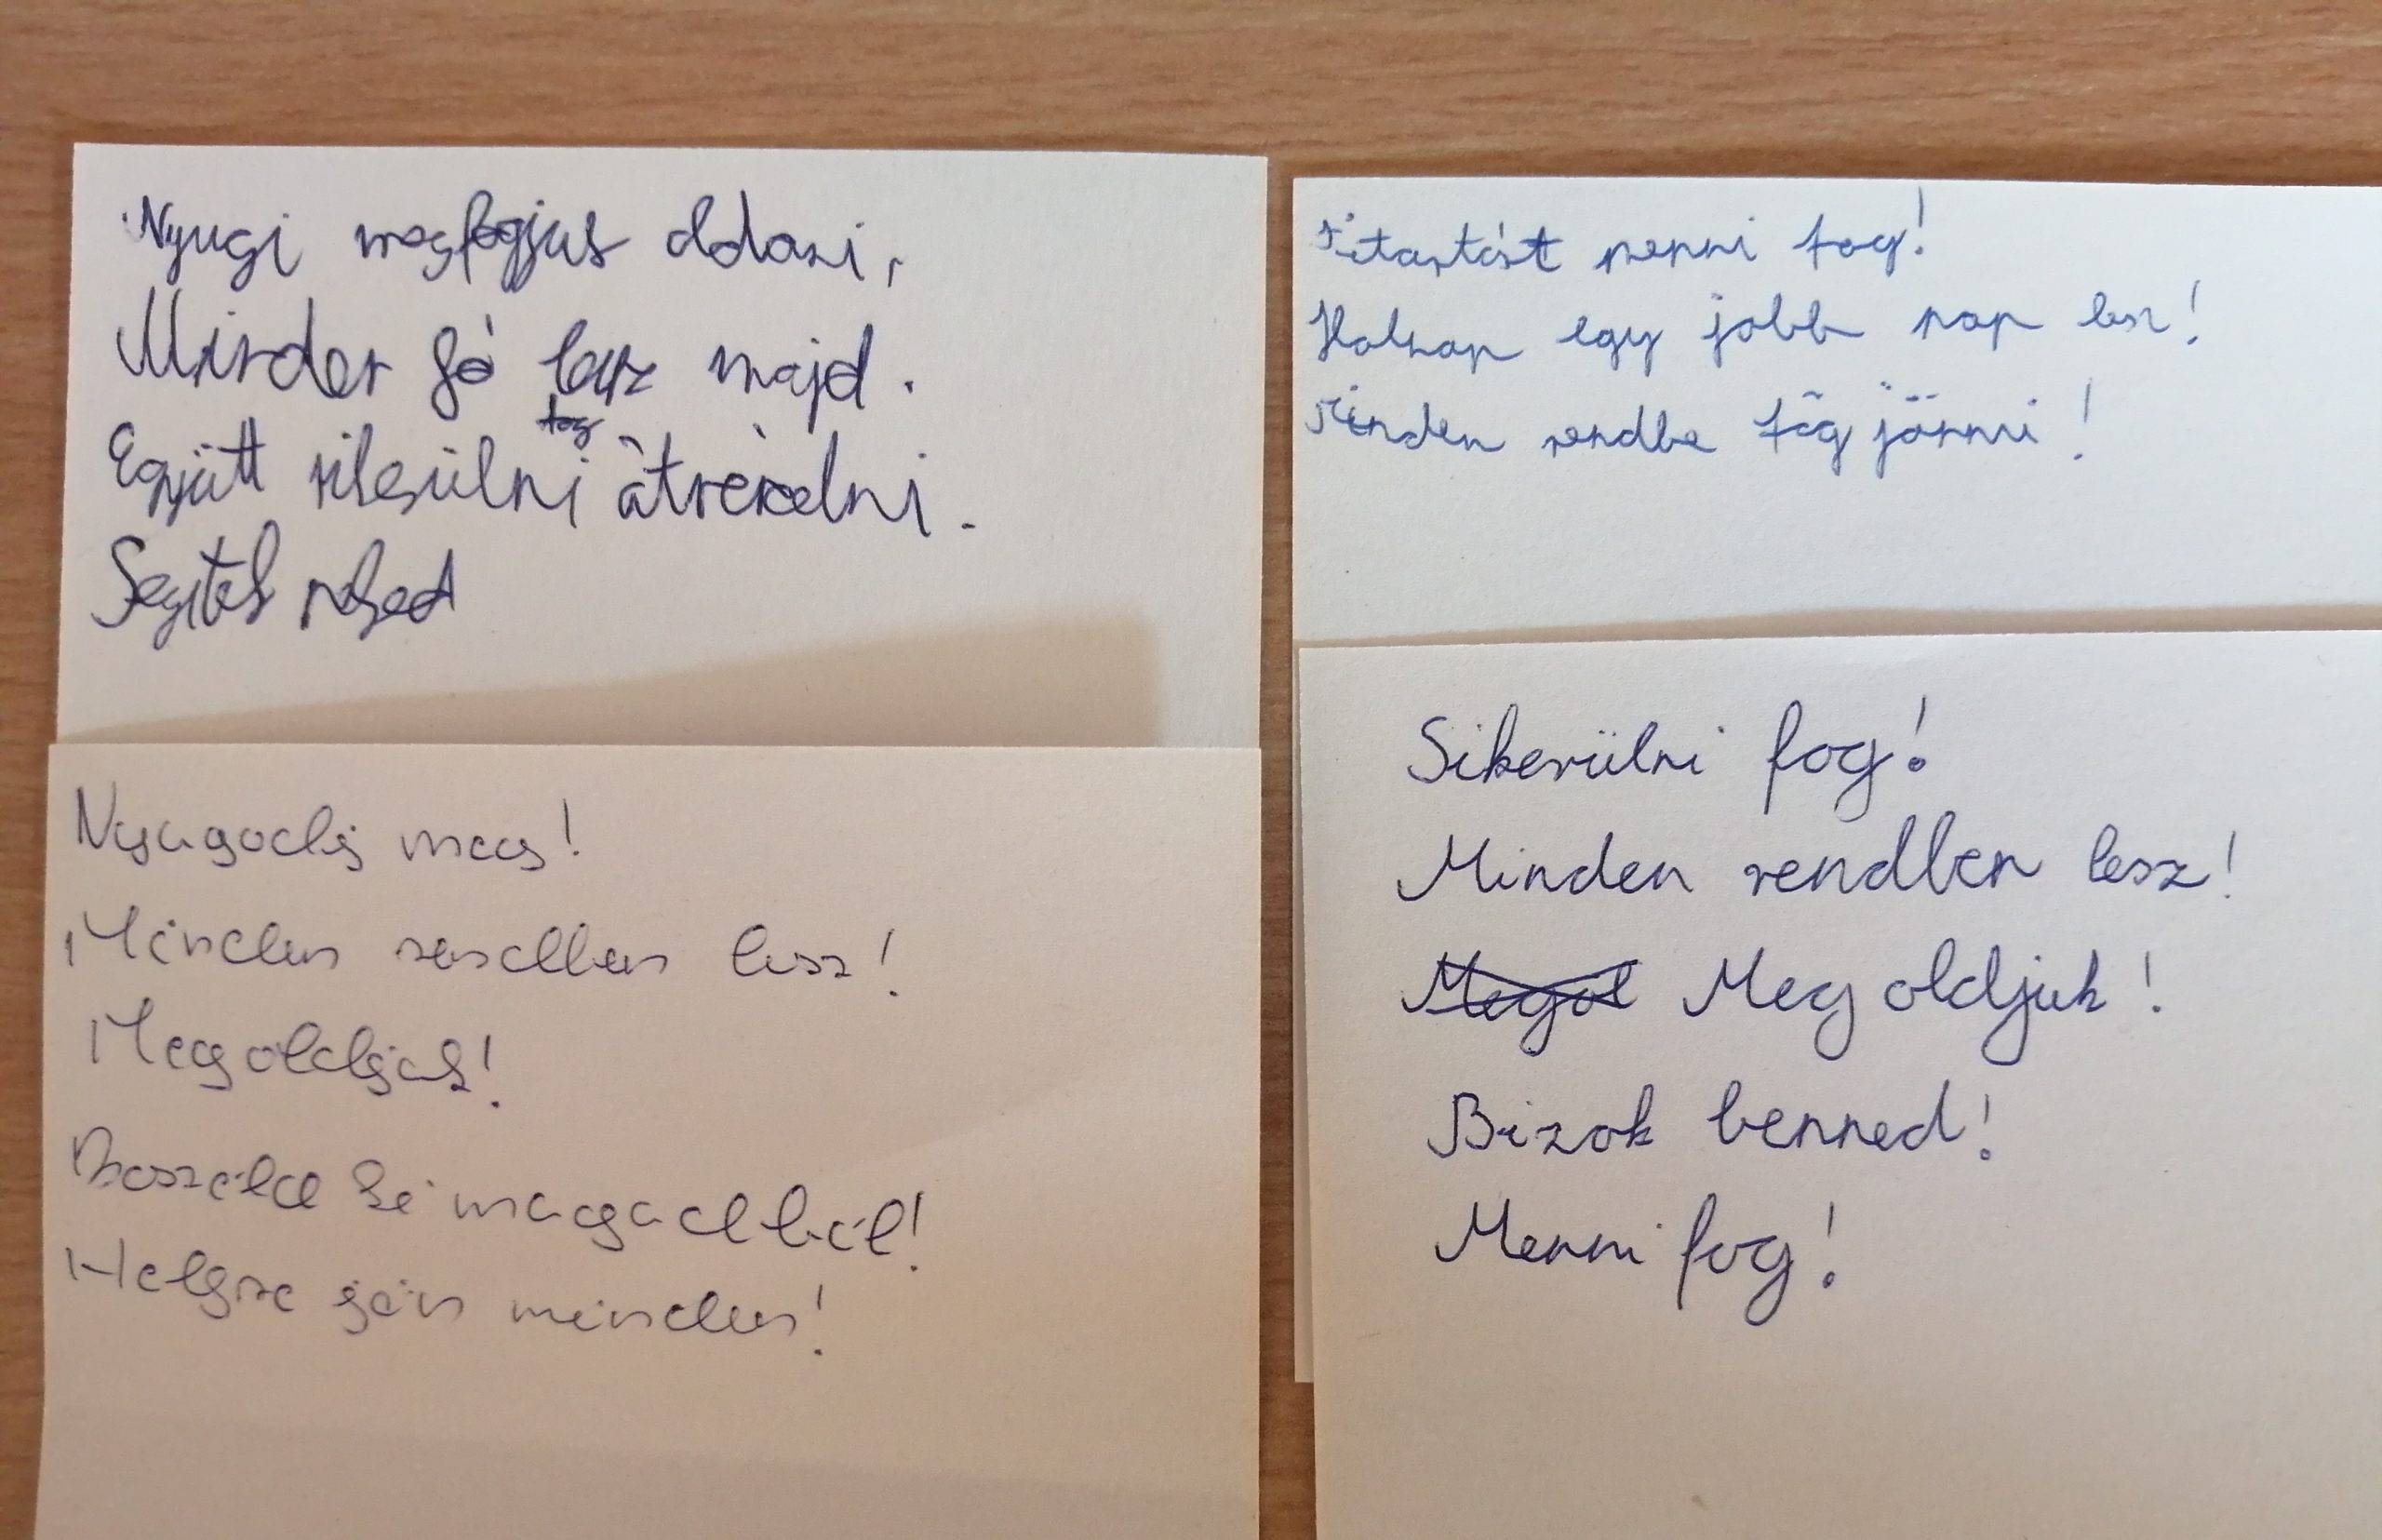 Nyugi megfogjuk oldani,
Minden jó lesz majd.
fog
Együtt sikerülni átvészelni.
Segítek neked
Nyugodj meg!
Minden rendben lesz!
Megoldjuk!
Beszéld ki magadból!
Helyre jön minden!
Kitartást menni fog!
Holnap egy jobb nap lesz!
Minden rendbe fog jönni!
Sikerülni fog!
Minden rendben lesz!
Megol Meg oldjuk!
Bízok benned!
Menni fog!